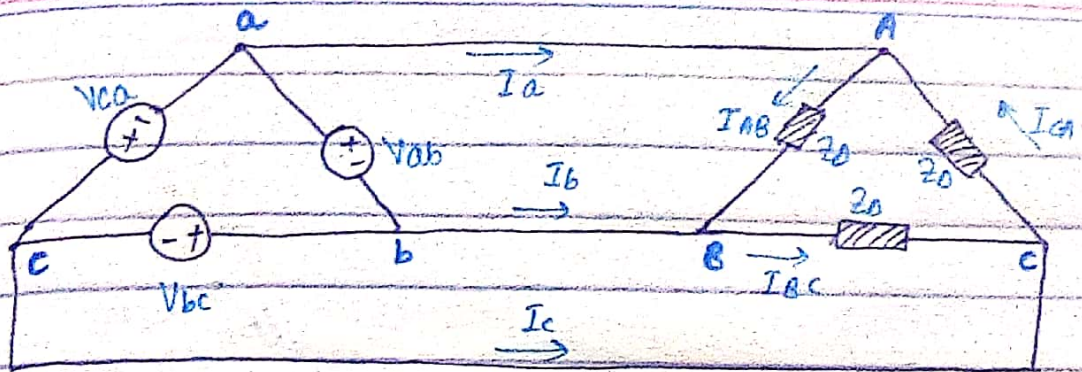 a A
Ia
Vca + - + - Vab
IAB ZΔ ZΔ ICA
Ib
C - + b B ZΔ C
Vbc IBC
Ic